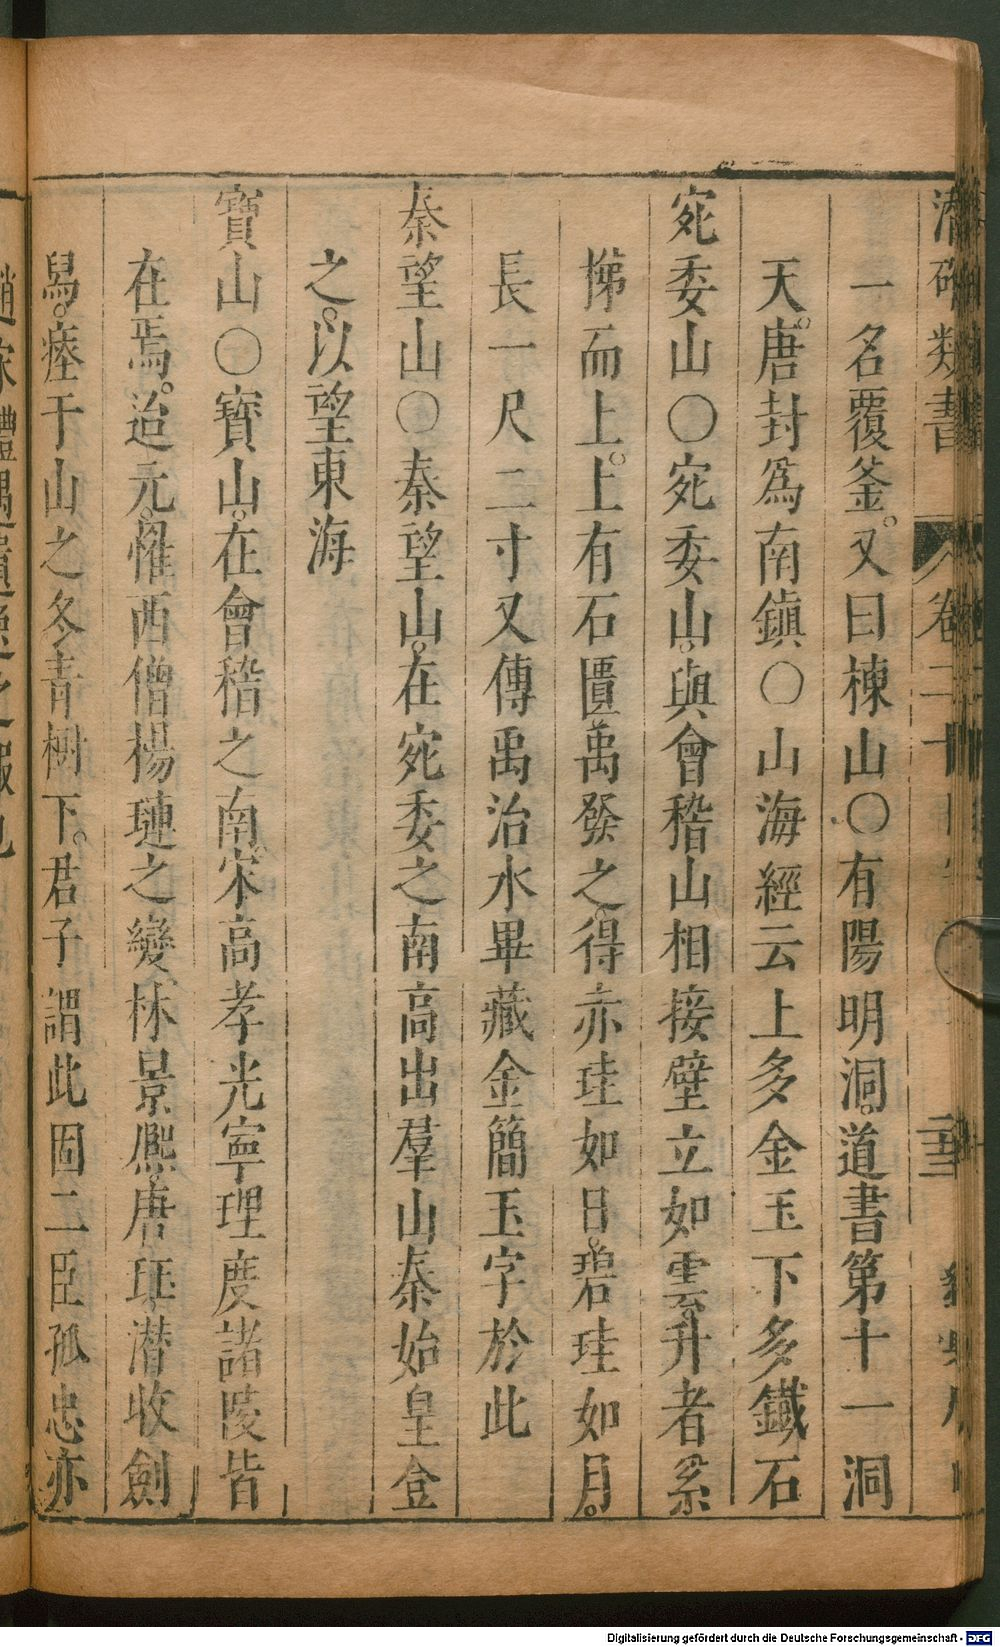 潛確類書 卷二十
一名覆釜。又曰棟山○有陽明洞。道書第十一洞
天。唐封爲南鎮○山海經云上多金玉下多鐵石
宛委山○宛委山。與會稽山相接壁立如雲。升者系
梯而上。上有石匱禹發之。得赤珪如日。碧珪如月。
長一尺二寸又傳禹治水畢藏金簡玉字於此
秦望山○秦望山。在宛委之南高出羣山秦始皇登
之。以望東海
寶山○寶山。在會稽之南宋高孝光寧理度諸陵皆
在焉。迨元。罹西僧楊璉之變林景熈。唐珏潜收劍
舄。瘞于山之冬青樹下。君子謂此固二臣孤忠亦
趙宋禮遇遺
Digitalisierung gefördert durch die Deutsche Forschungsgemeinschaft - DFG